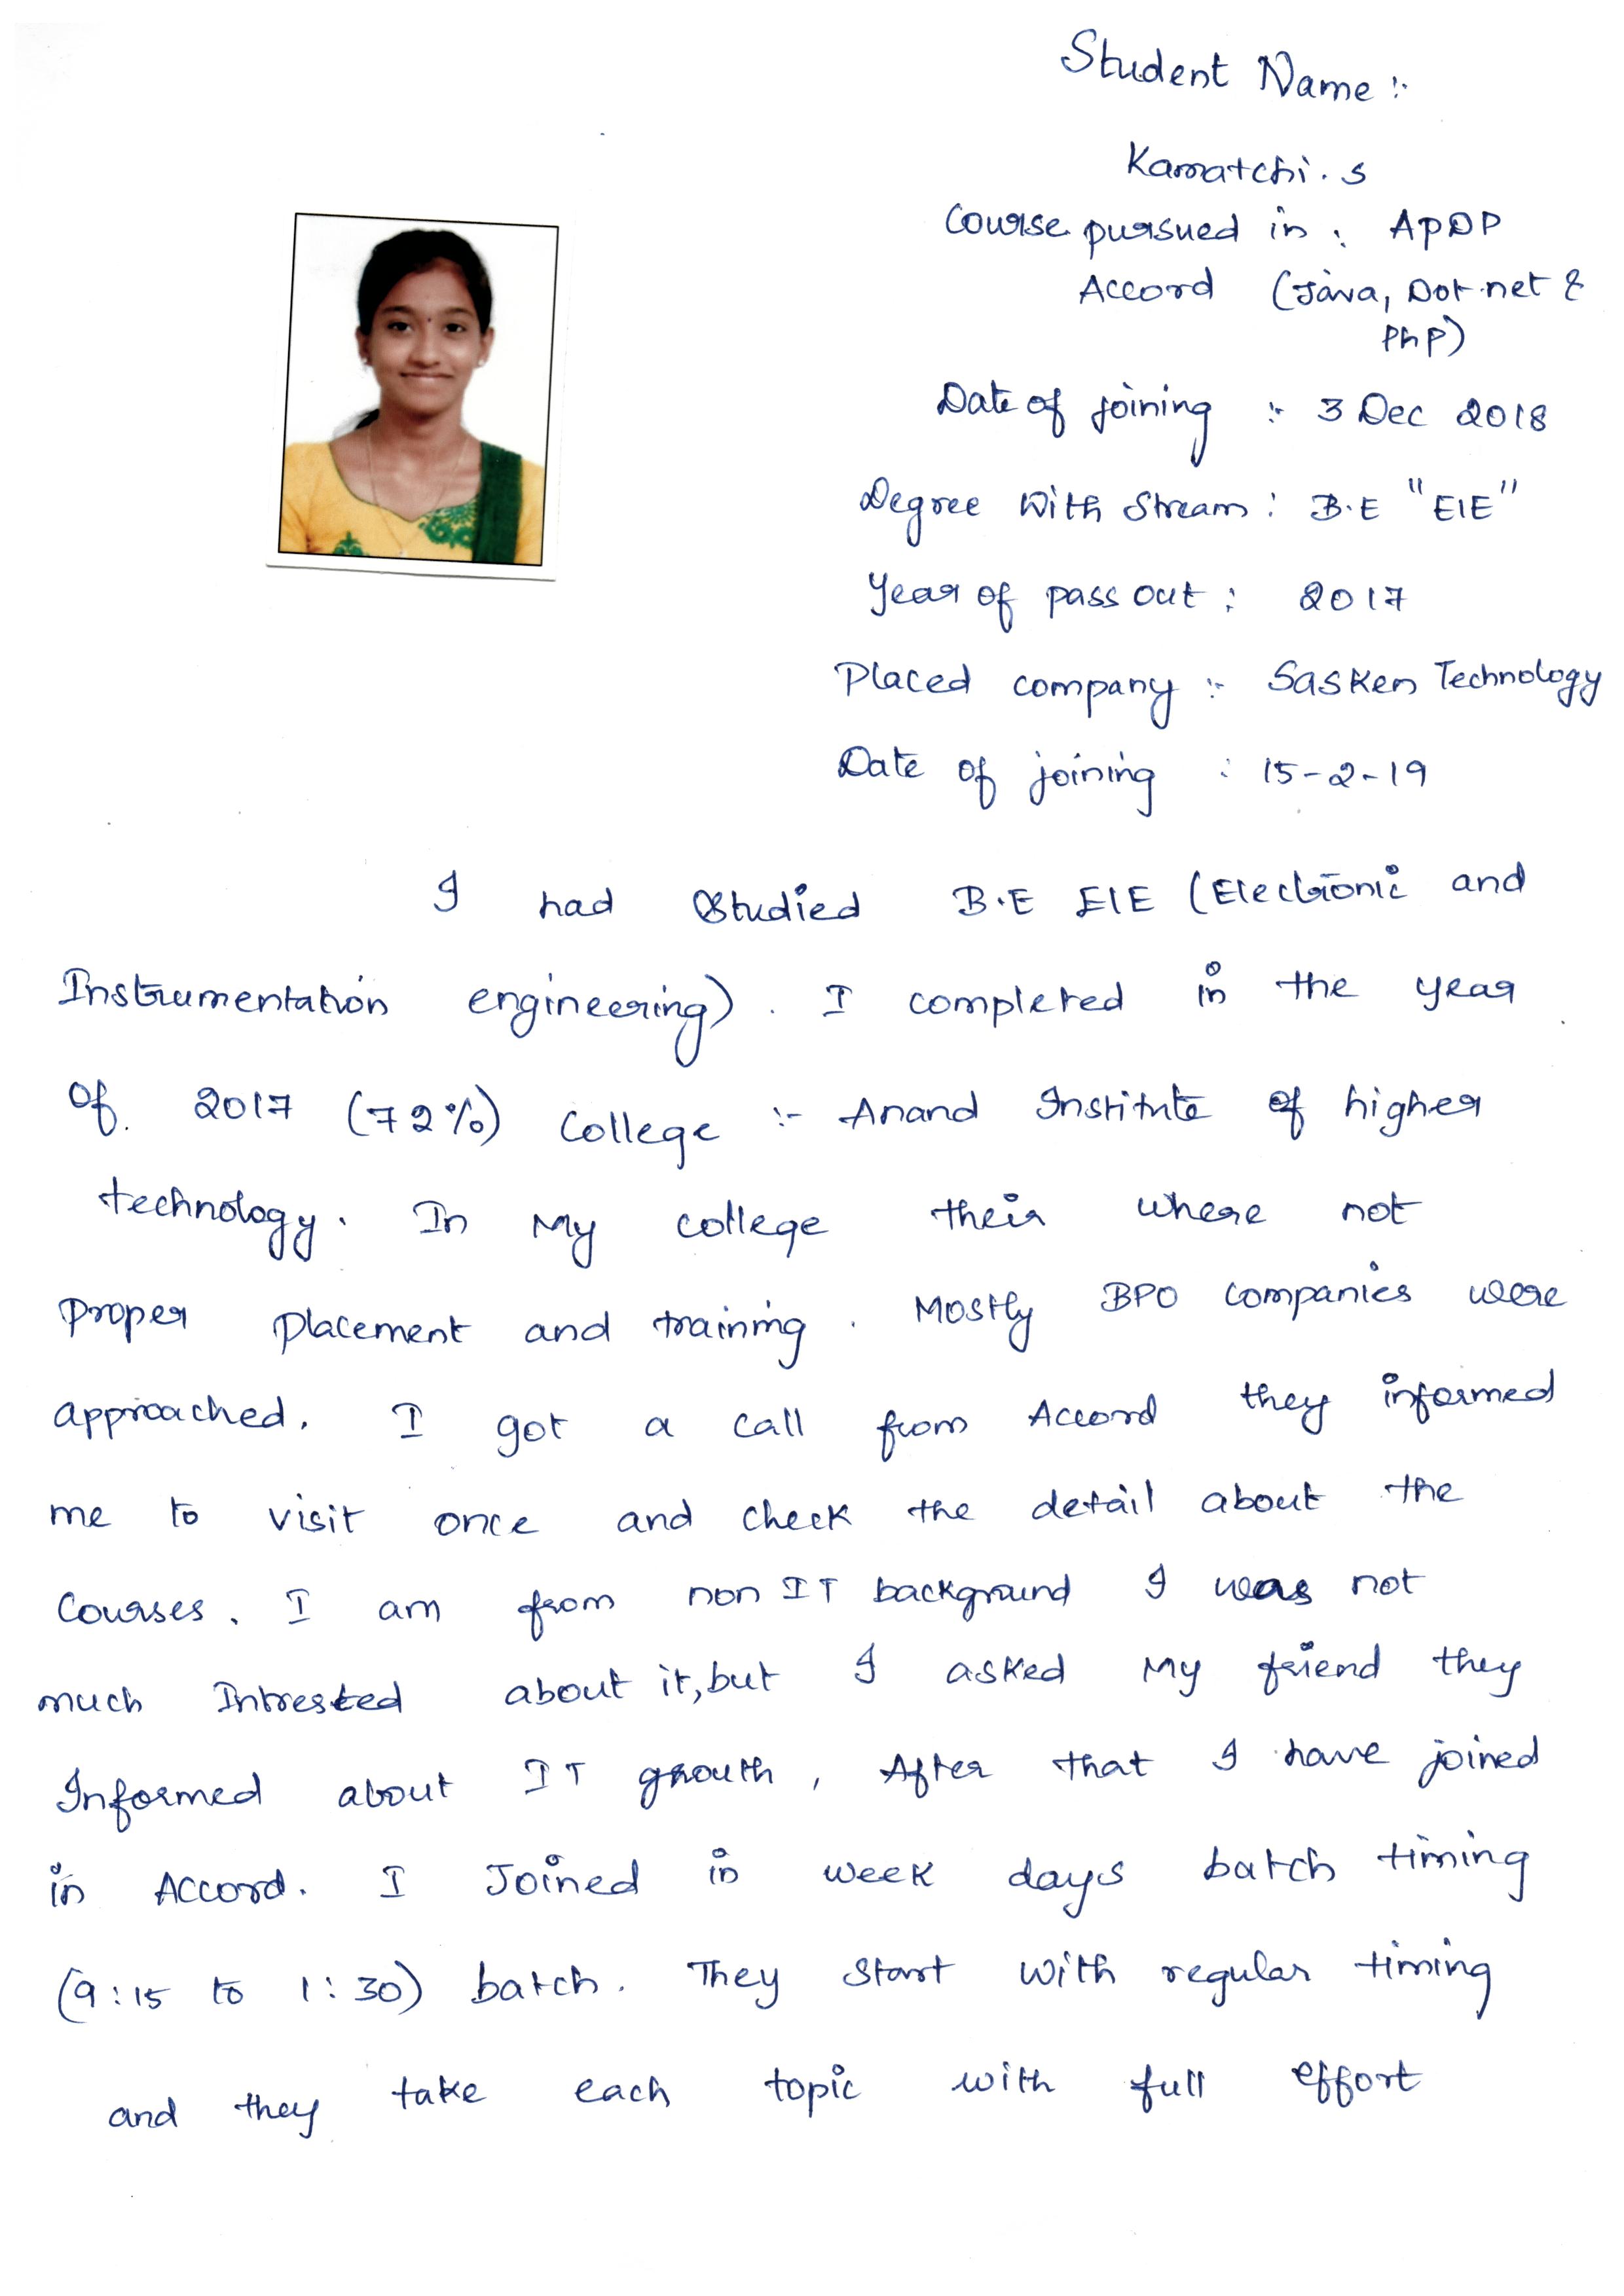 Student Name :-
Kamatchi . s
Course pursued in : APDP
Accord (Java, Dot net &
PhP)
Date of joining :- 3 Dec 2018
Degree With Stream : B.E "EIE"
Year of pass out : 2017
Placed company :- Sasken Technology
Date of joining : 15-2-19
I had Studied B.E EIE (Electronic and
Instrumentation engineering) . I completed in the year
of. 2017 (72%) College :- Anand Institute of higher
technology . In My college their where not
Proper Placement and training . Mostly BPO companies were
approached. I got a call from Accord they informed
me to visit once and check the detail about the
Courses . I am from non IT background I was not
much Intrested about it, but I asked My friend they
Informed about IT grouth , After that I have joined
in Accord. I Joined in week days batch timing
(9:15 to 1:30) batch . They Start With regular timing
and they take each topic with full effort